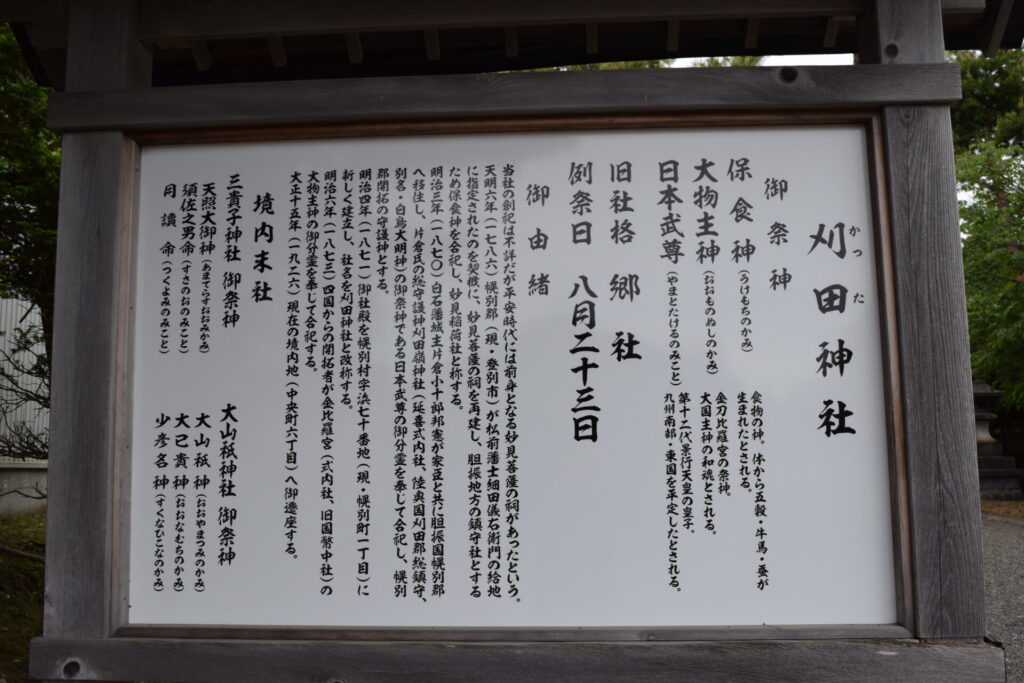 刈田神社
かった
御祭神
保食神(うけもちのかみ)
食物の神。体から五穀・牛馬・蚕が
生まれたとされる。
大物主神(おおものぬしのかみ)
金刀比羅宮の祭神。
大国主神の和魂とされる。
日本武尊(やまとたけるのみこと)
第十二代景行天皇の皇子。
九州南部・東国を平定したとされる。
旧社格 郷社
例祭日 八月二十三日
御由緒
当社の創祀は不詳だが平安時代には前身となる妙見菩薩の祠があったという。
天明六年(一七八六)幌別郡(現・登別市)が松前藩士細田儀右衛門の給地
に指定されたのを契機に、妙見菩薩の祠を再建し、胆振地方の鎮守社とする
ため保食神を合祀し、妙見稲荷社と称する。
明治三年(一八七〇)白石藩城主片倉小十郎邦憲が家臣と共に胆振国幌別郡
へ移住し、片倉氏の総守護神刈田嶺神社(延喜式内社、陸奥国刈田郡総鎮守、
別名・白鳥大明神)の御祭神である日本武尊の御分霊を奉じて合祀し、幌別
郡開拓の守護神とする。
明治四年(一八七一)御社殿を幌別村字浜七十番地(現・幌別町一丁目)に
新しく建立し、社名を刈田神社と改称する。
明治六年(一八七三)四国からの開拓者が金比羅宮(式内社、旧国幣中社)の
大物主神の御分霊を奉じて合祀する。
大正十五年(一九二六)現在の境内地(中央町六丁目)へ御遷座する。
境内末社
三貴子神社 御祭神
天照大御神(あまてらすおおみかみ)
須佐之男命(すさのおのみこと)
月讀命(つくよみのみこと)
大山祇神社 御祭神
大山祇神(おおやまつみのかみ)
大己貴神(おおなむちのかみ)
少彦名神(すくなひこなのかみ)